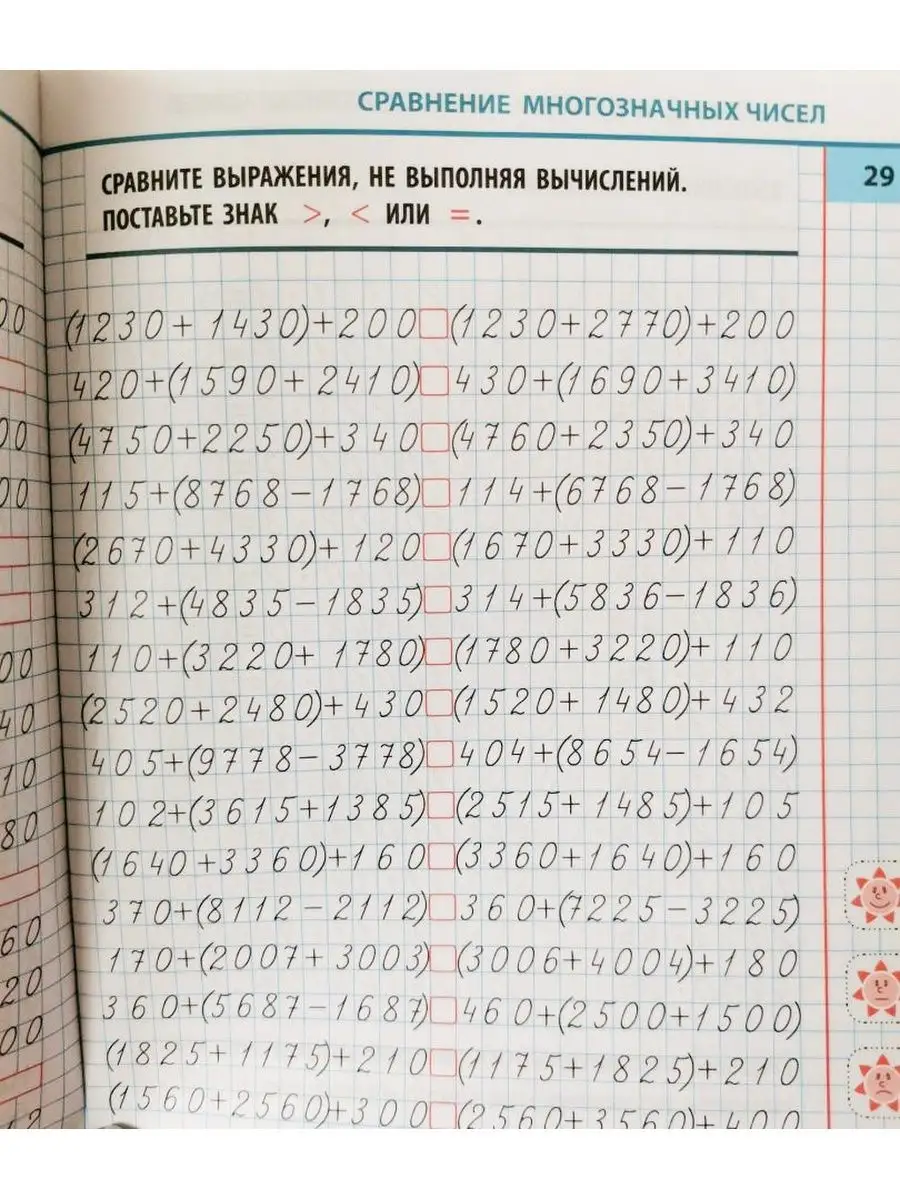 СРАВНЕНИЕ МНОГОЗНАЧНЫХ ЧИСЕЛ
29
СРАВНИТЕ ВЫРАЖЕНИЯ, НЕ ВЫПОЛНЯЯ ВЫЧИСЛЕНИЙ.
ПОСТАВЬТЕ ЗНАК >, < ИЛИ = .
(1230+1430)+200□(1230+2770)+200
420+(1590+2410)□430+(1690+3410)
(4750+2250)+340□(4760+2350)+340
115+(8768-1768)□114+(6768-1768)
(2670+4330)+120□(1670+3330)+110
312+(4835-1835)□314+(5836-1836)
110+(3220+1780)□(1780+3220)+110
(2520+2480)+430□(1520+1480)+432
405+(9778-3778)□404+(8654-1654)
102+(3615+1385)□(2515+1485)+105
(1640+3360)+160□(3360+1640)+160
370+(8112-2112)□360+(7225-3225)
170+(2007+3003)□(3006+4004)+180
360+(5687-1687)□460+(2500+1500)
(1825+1175)+210□(1175+1825)+210
(1560+2560)+300□(2560+3560)+400